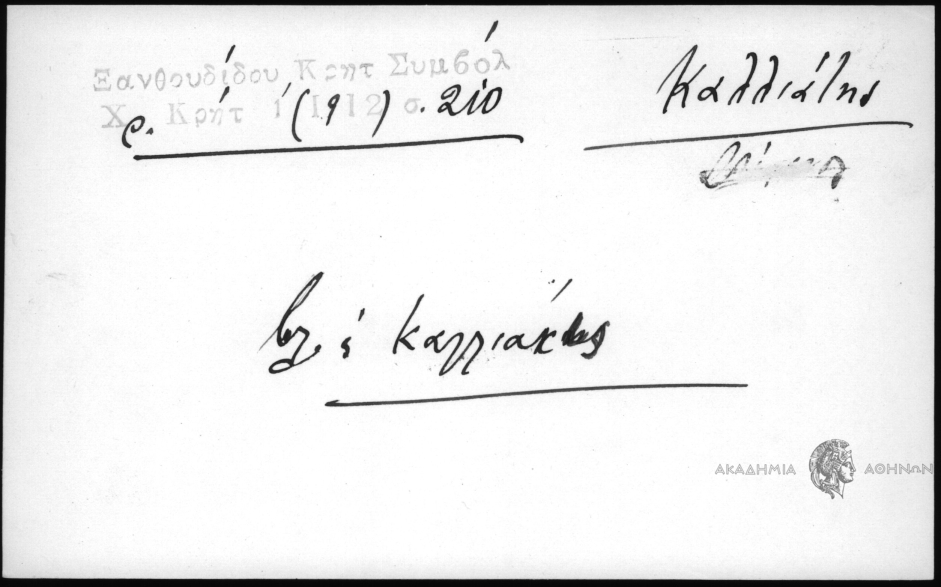 Ξανθουδίδου Κρητ Συμβόλ
Χ. Κρήτ 1 (1912) σ. 210
Καλλιάτης
βλ. ἐ Καλλιάκης
ΑΚΑΔΗΜΙΑ ΑΘΗΝΩΝ